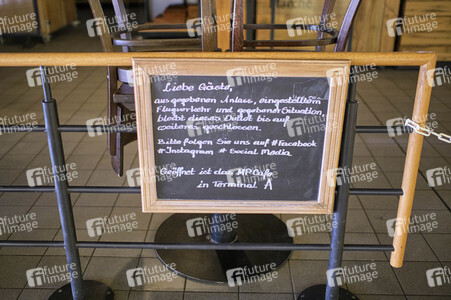 Liebe Gäste,
aus gegebenen Anlass, eingestelltem
Flugverkehr und gegebener Situation
bleibt dieses Outlet bis auf
weiteres geschlossen.
Bitte folgen Sie uns auf #Facebook
#Instagram # Social Media
Geöffnet ist das MPCafe
in Terminal A
future image